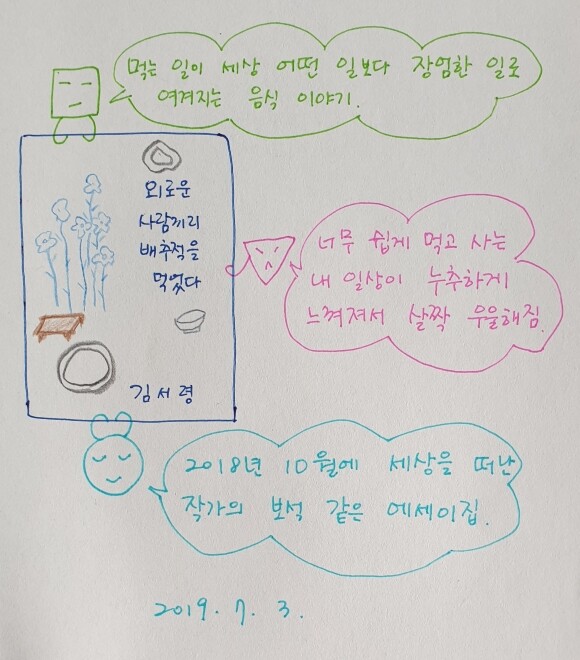 먹는 일이 세상 어떤 일보다 장엄한 일로
여겨지는 음식 이야기.
외로운
사람끼리
배추적을
먹었다
김서령
너무 쉽게 먹고 사는
내 일상이 누추하게
느껴져서 살짝 우울해짐.
2018년 10월에 세상을 떠난
작가의 보석 같은 에세이집.
2019. 7. 3.